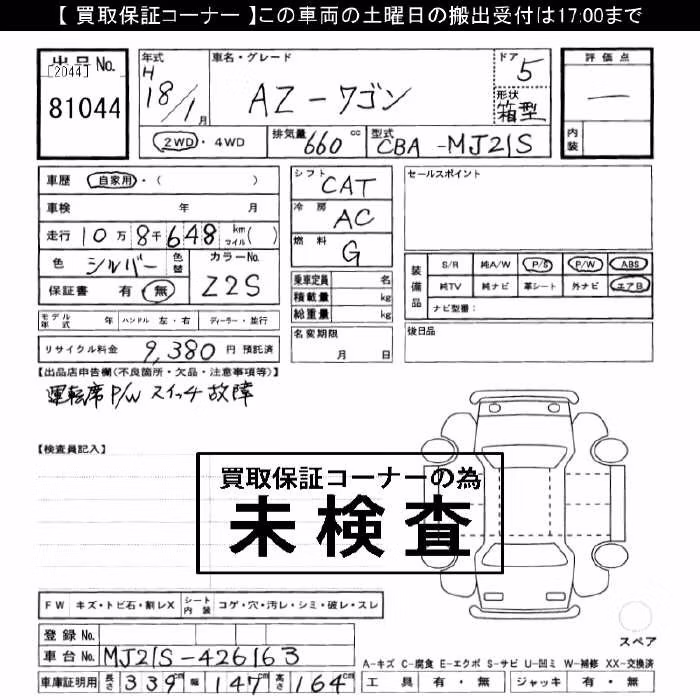 【 買取保証コーナー 】この車両の土曜日の搬出受付は17:00まで
出品No. [2044] 81044
年式 H 18/1月
車名・グレード AZ-ワゴン
ドア 5
形状 箱型
評価点 —
内装
2WD・4WD
排気量 660 cc
型式 CBA-MJ21S
車歴 自家用・( )
車検 年 月
走行 10万8千648 km マイル( )
色 シルバー 色替 カラーNo. Z2S
保証書 有・無
シフト CAT
冷房 AC
燃料 G
乗車定員 名
積載量 kg
総重量 kg
セールスポイント
装備品 S/R 純A/W P/S P/W ABS
純TV 純ナビ 革シート 外ナビ エアB
ナビ型番:
モデル年式 年 ハンドル 左・右 ディーラー・並行
名変期限 月 日
後日品
リサイクル料金 9,380 円 預託済
【出品店申告欄(不良箇所・欠品・注意事項等)】
運転席P/W スイッチ故障
【検査員記入】
買取保証コーナーの為
未検査
FW キズ・トビ石・割レX シート内装 コゲ・穴・汚レ・シミ・破レ・スレ
スペア
登録No.
車台No. MJ21S-426163
A-キズ C-腐食 E-エクボ S-サビ U-凹ミ W-補修 XX-交換済
車庫証明用 長さ 339cm 幅 147cm 高さ 164cm
工具 有・無 ジャッキ 有・無